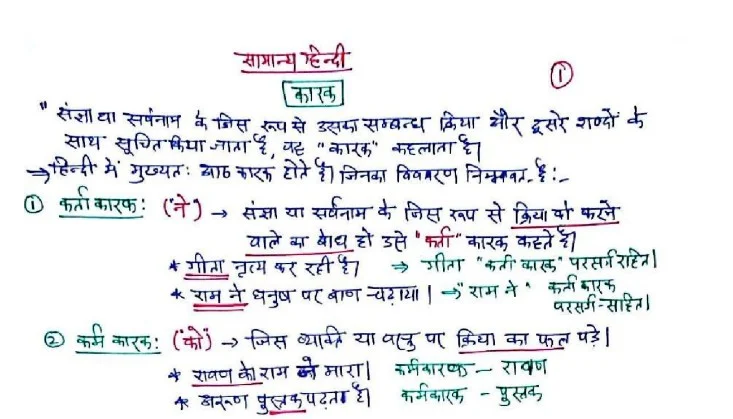 सामान्य हिन्दी
1
कारक
"संज्ञा या सर्वनाम के जिस रूप से उसका सम्बन्ध क्रिया और दूसरे शब्दों के
साथ सूचित किया जाता है, वह "कारक" कहलाता है।
→ हिन्दी में मुख्यतः आठ कारक होते है। जिनका विवरण निम्नवत् है:-
1 कर्ता कारक: ("ने") → संज्ञा या सर्वनाम के जिस रूप से क्रिया को करने
वाले का बोध हो उसे "कर्ता" कारक कहते है।
* गीता नृत्य कर रही है। ⇒ गीता "कर्ता कारक" परसर्ग रहित।
* राम ने धनुष पर बाण चढ़ाया। → "राम ने" कर्ता कारक
परसर्ग-सहित।
2 कर्म कारक: ("को") → जिस व्यक्ति या वस्तु पर क्रिया का फल पड़े।
* रावण को राम ने मारा। कर्मकारक – रावण
* अरूण पुस्तक पढ़ता है। कर्मकारक – पुस्तक